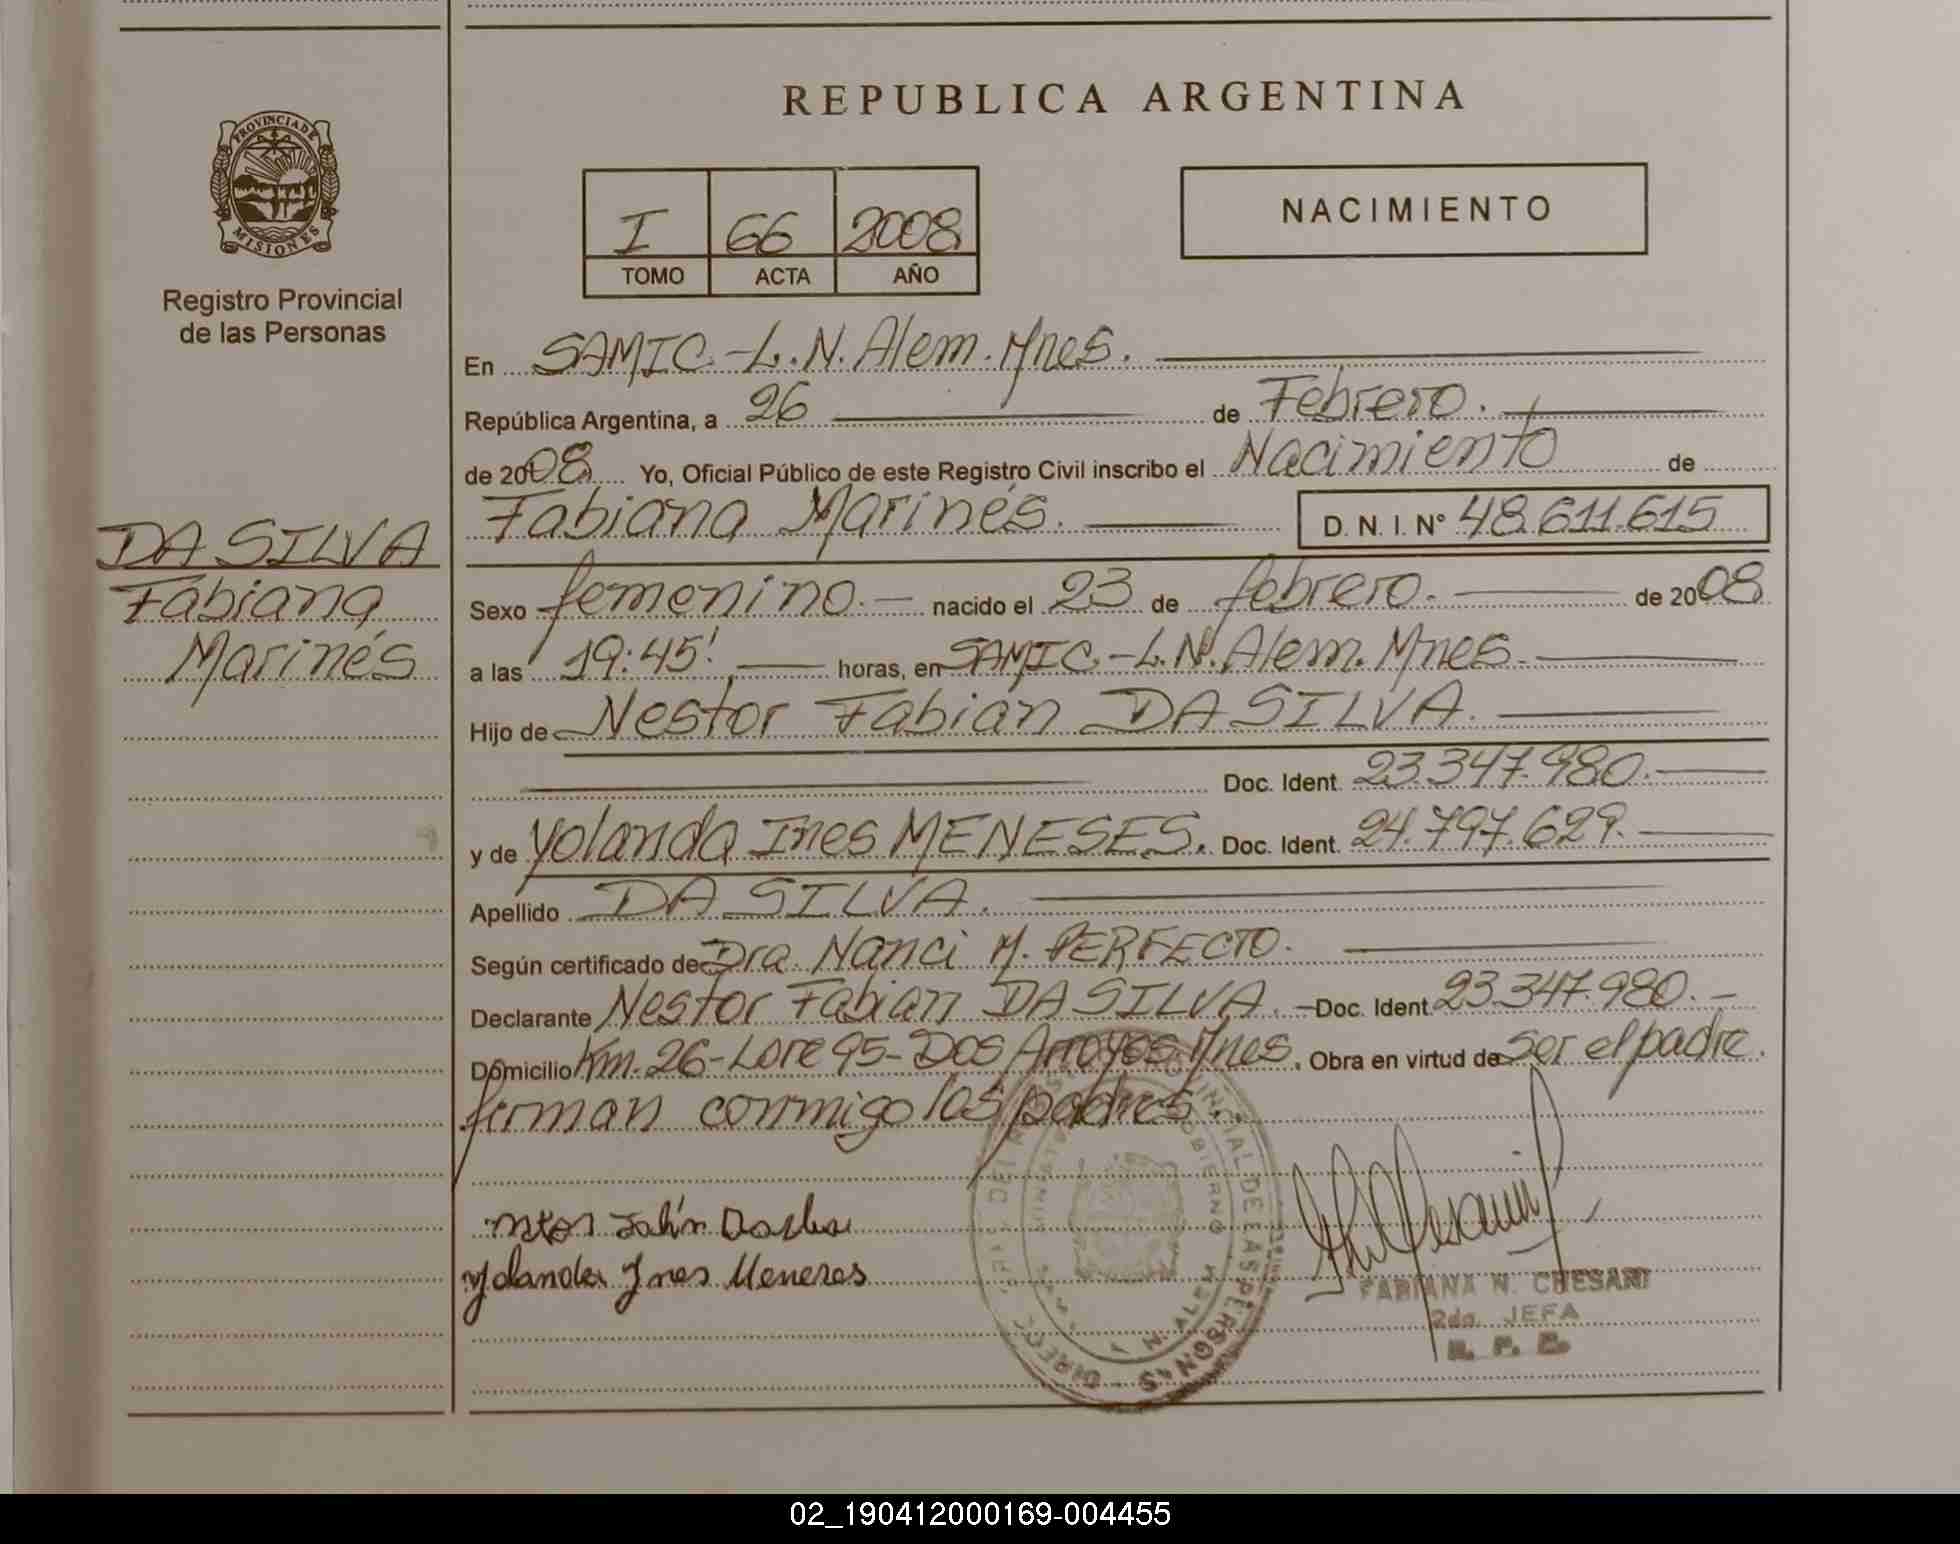 REPUBLICA ARGENTINA
PROVINCIA DE
MISIONES
Registro Provincial
de las Personas
I 66 2008
TOMO ACTA AÑO
NACIMIENTO
En SAMIC.-L.N.Alem.Mnes.
República Argentina, a 26 de Febrero.
de 2008 Yo, Oficial Público de este Registro Civil inscribo el Nacimiento de
Fabiana Marinés. D. N. I. N° 48.611.615
DA SILVA
Fabiana
Marinés
Sexo femenino.- nacido el 23 de febrero. de 2008
a las 19:45'. horas, en SAMIC.-L.N.Alem.Mnes.
Hijo de Nestor Fabian DA SILVA.
Doc. Ident. 23.347.980.
y de Yolanda Ines MENESES. Doc. Ident. 24.797.629.
Apellido DA SILVA.
Según certificado de Dra. Nanci M. PERFECTO.
Declarante Nestor Fabian DA SILVA. - Doc. Ident. 23.347.980.-
Domicilio Km.26-Lote 95-Dos Arroyos.Mnes. Obra en virtud de ser el padre.
firman conmigo los padres.
Yolanda Ines Meneses
FABIANA N. CHESANI
2da. JEFA
R. P. P.
DE LAS PERSONAS
N. ALEM
02_190412000169-004455